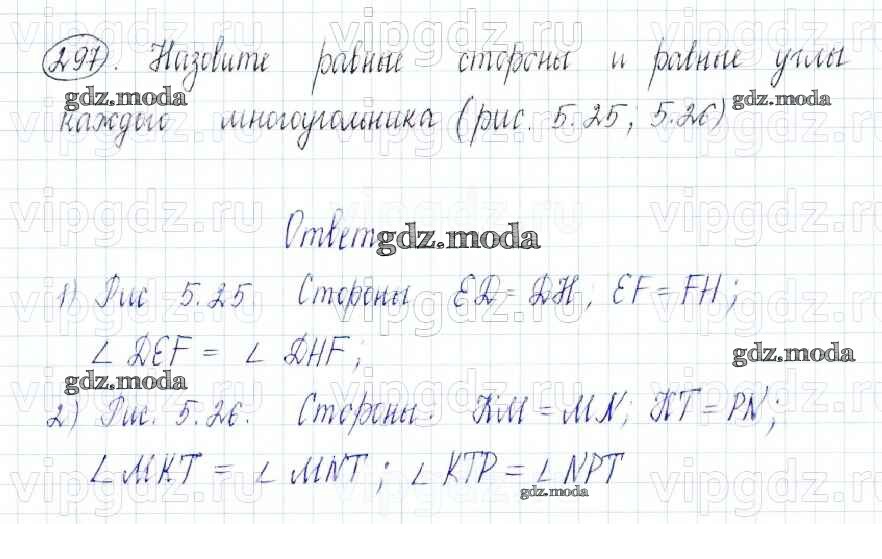 297. Назовите равные стороны и равные углы
gdz.moda
gdz.moda
каждого многоугольника (рис. 5.25; 5.26)
Ответ
gdz.moda
1) Рис 5.25. Стороны ED = DH; EF = FH;
∠ DEF = ∠ DHF;
gdz.moda
gdz.moda
2) Рис. 5.26. Стороны: KM = MN; KT = PN;
∠ MKT = ∠ MNT; ∠ KTP = ∠ NPT
gdz.moda
vipgdz.ru